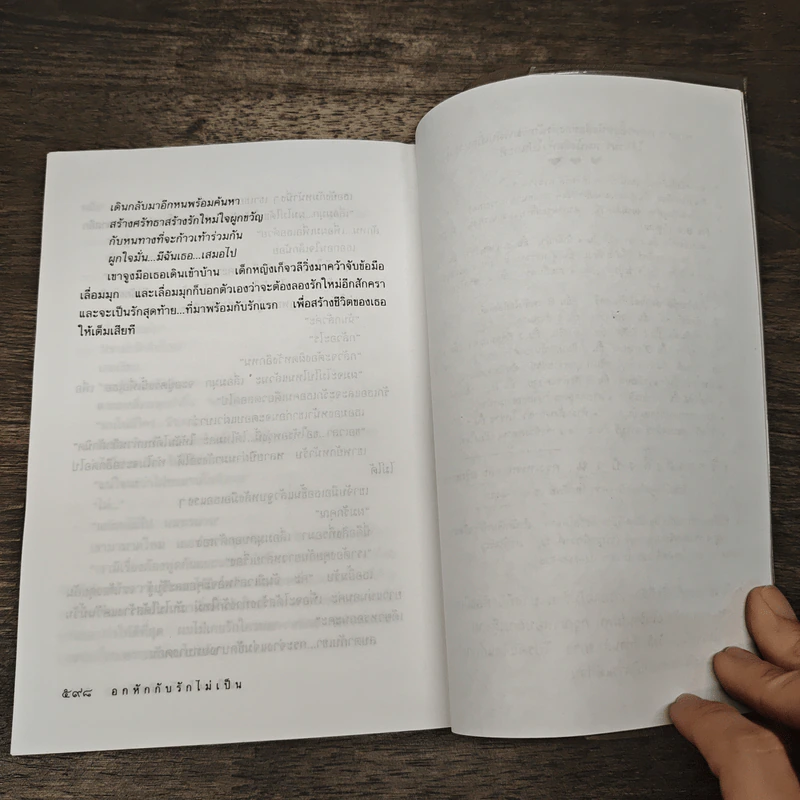 เดินกลับมาอีกหนพร้อมค้นหา
สร้างศรัทธาสร้างรักใหม่ใจผูกขวัญ
กับหนทางที่จะก้าวเท้าร่วมกัน
ผูกใจมั่น...มีฉันเธอ...เสมอไป
เขาจูงมือเธอเดินเข้าบ้าน เด็กหญิงเก็จวลีวิ่งมาคว้าจับข้อมือ
เลื่อมมุก และเลื่อมมุกก็บอกตัวเองว่าจะต้องลองรักใหม่อีกสักครา
และจะเป็นรักสุดท้าย...ที่มาพร้อมกับรักแรก เพื่อสร้างชีวิตของเธอ
ให้เต็มเสียที
๕๙๘ อกหักกับรักไม่เป็น